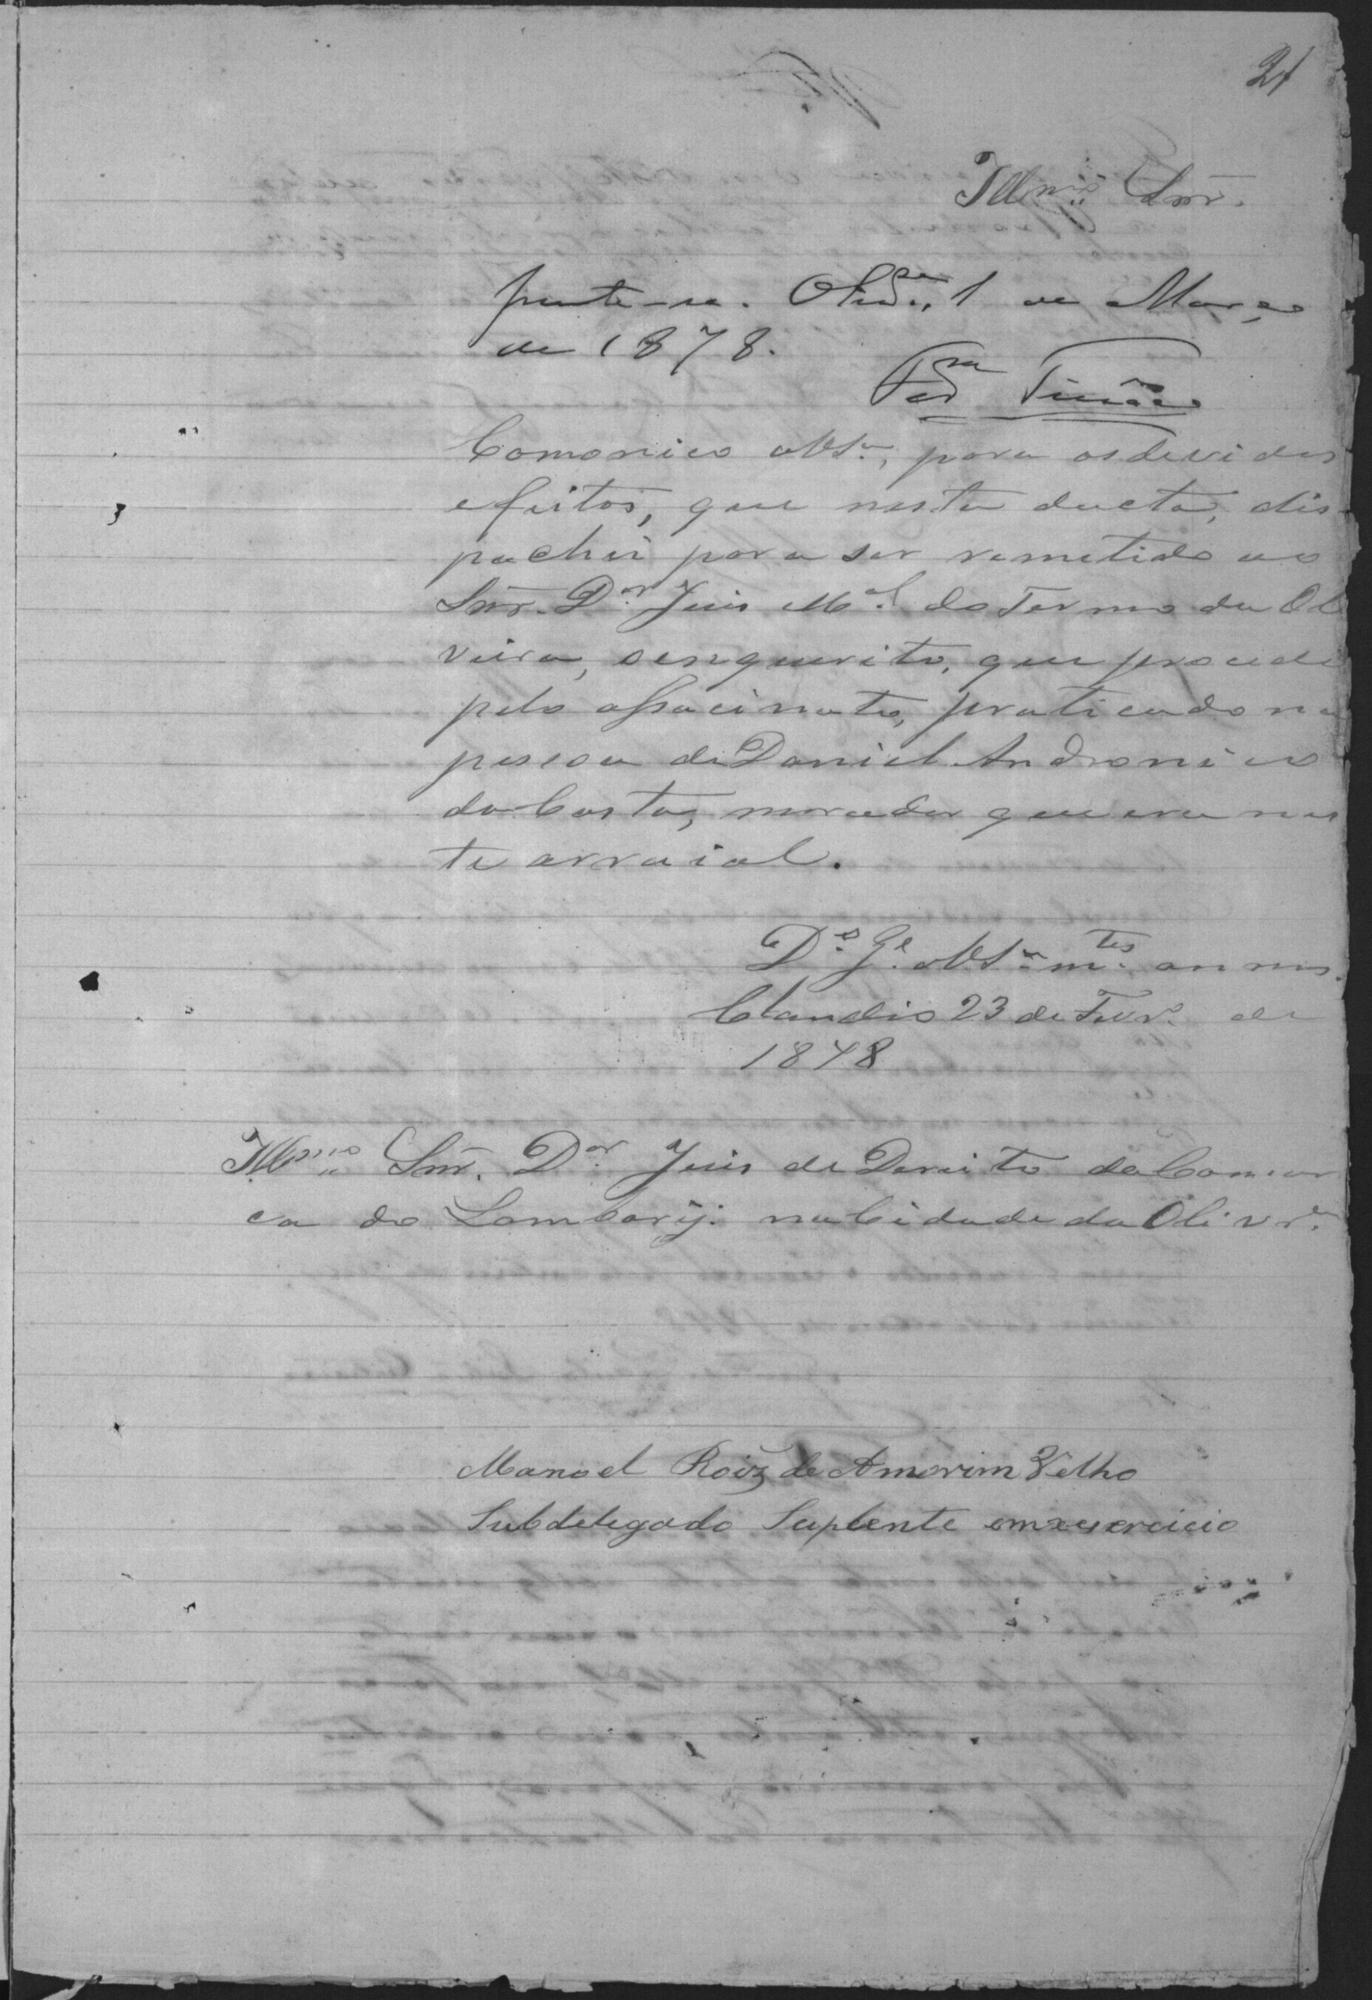 21
Illmo Snr.
junte-se. Olivra, 1 de Março
de 1878.
Comonico aVSa, para osdevidos
efeitos, que nesta dacta, dis
pachei para ser remetido ao
Snr. Dor Juis Mal do Termo da Oli
veira, oenquerito, que procedi
pelo assacinato, praticado na
pessoa de Daniel Andronico
da Costa, morador que era nes
te arraial.
Ds Ge aVSa mtes annos.
Claudio 23 de Fevro de
1878
Illmo Snr. Dor Juis de Dereito da Comar
ca do Lambary. na Cidade da Olivra
Manoel Roiz de Amorim Velho
Subdelegado Suplente emexercicio